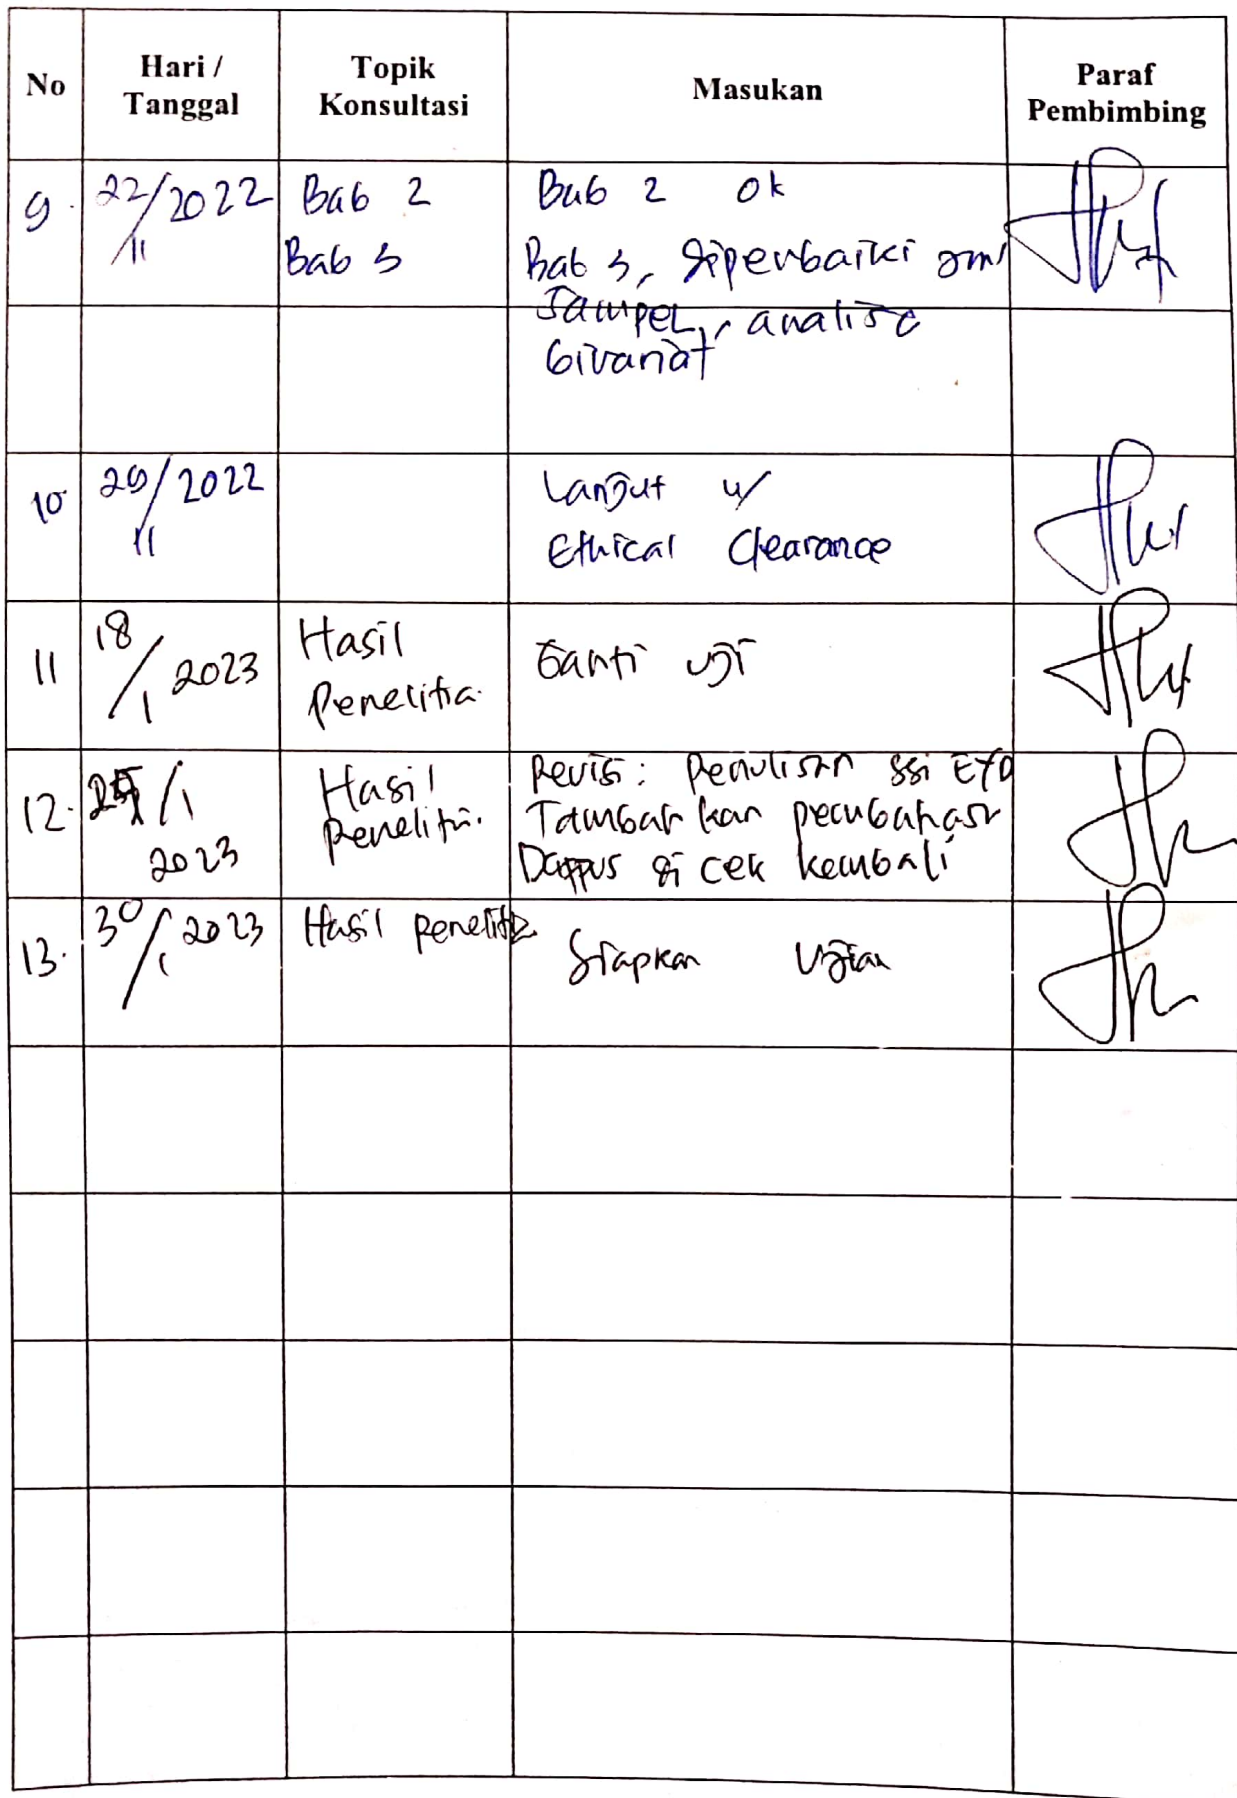 No
Hari / Tanggal
Topik Konsultasi
Masukan
Paraf Pembimbing
9.
22/11 2022
Bab 2
Bab 3
Bab 2 ok
Bab 3, diperbaiki
Sampel, analisa
bivariat
10
/11 2022
Lanjut u/
Ethical Clearance
11
18/1 2023
Hasil
Penelitia
Ganti uji
12.
/1
2023
Hasil
Penelitia.
Revisi: Penulisan ssi EYD
Tambah kan pembahasan
Dappus di cek kembali
13.
30/1 2023
Hasil penelitia
Siapkan Ujian